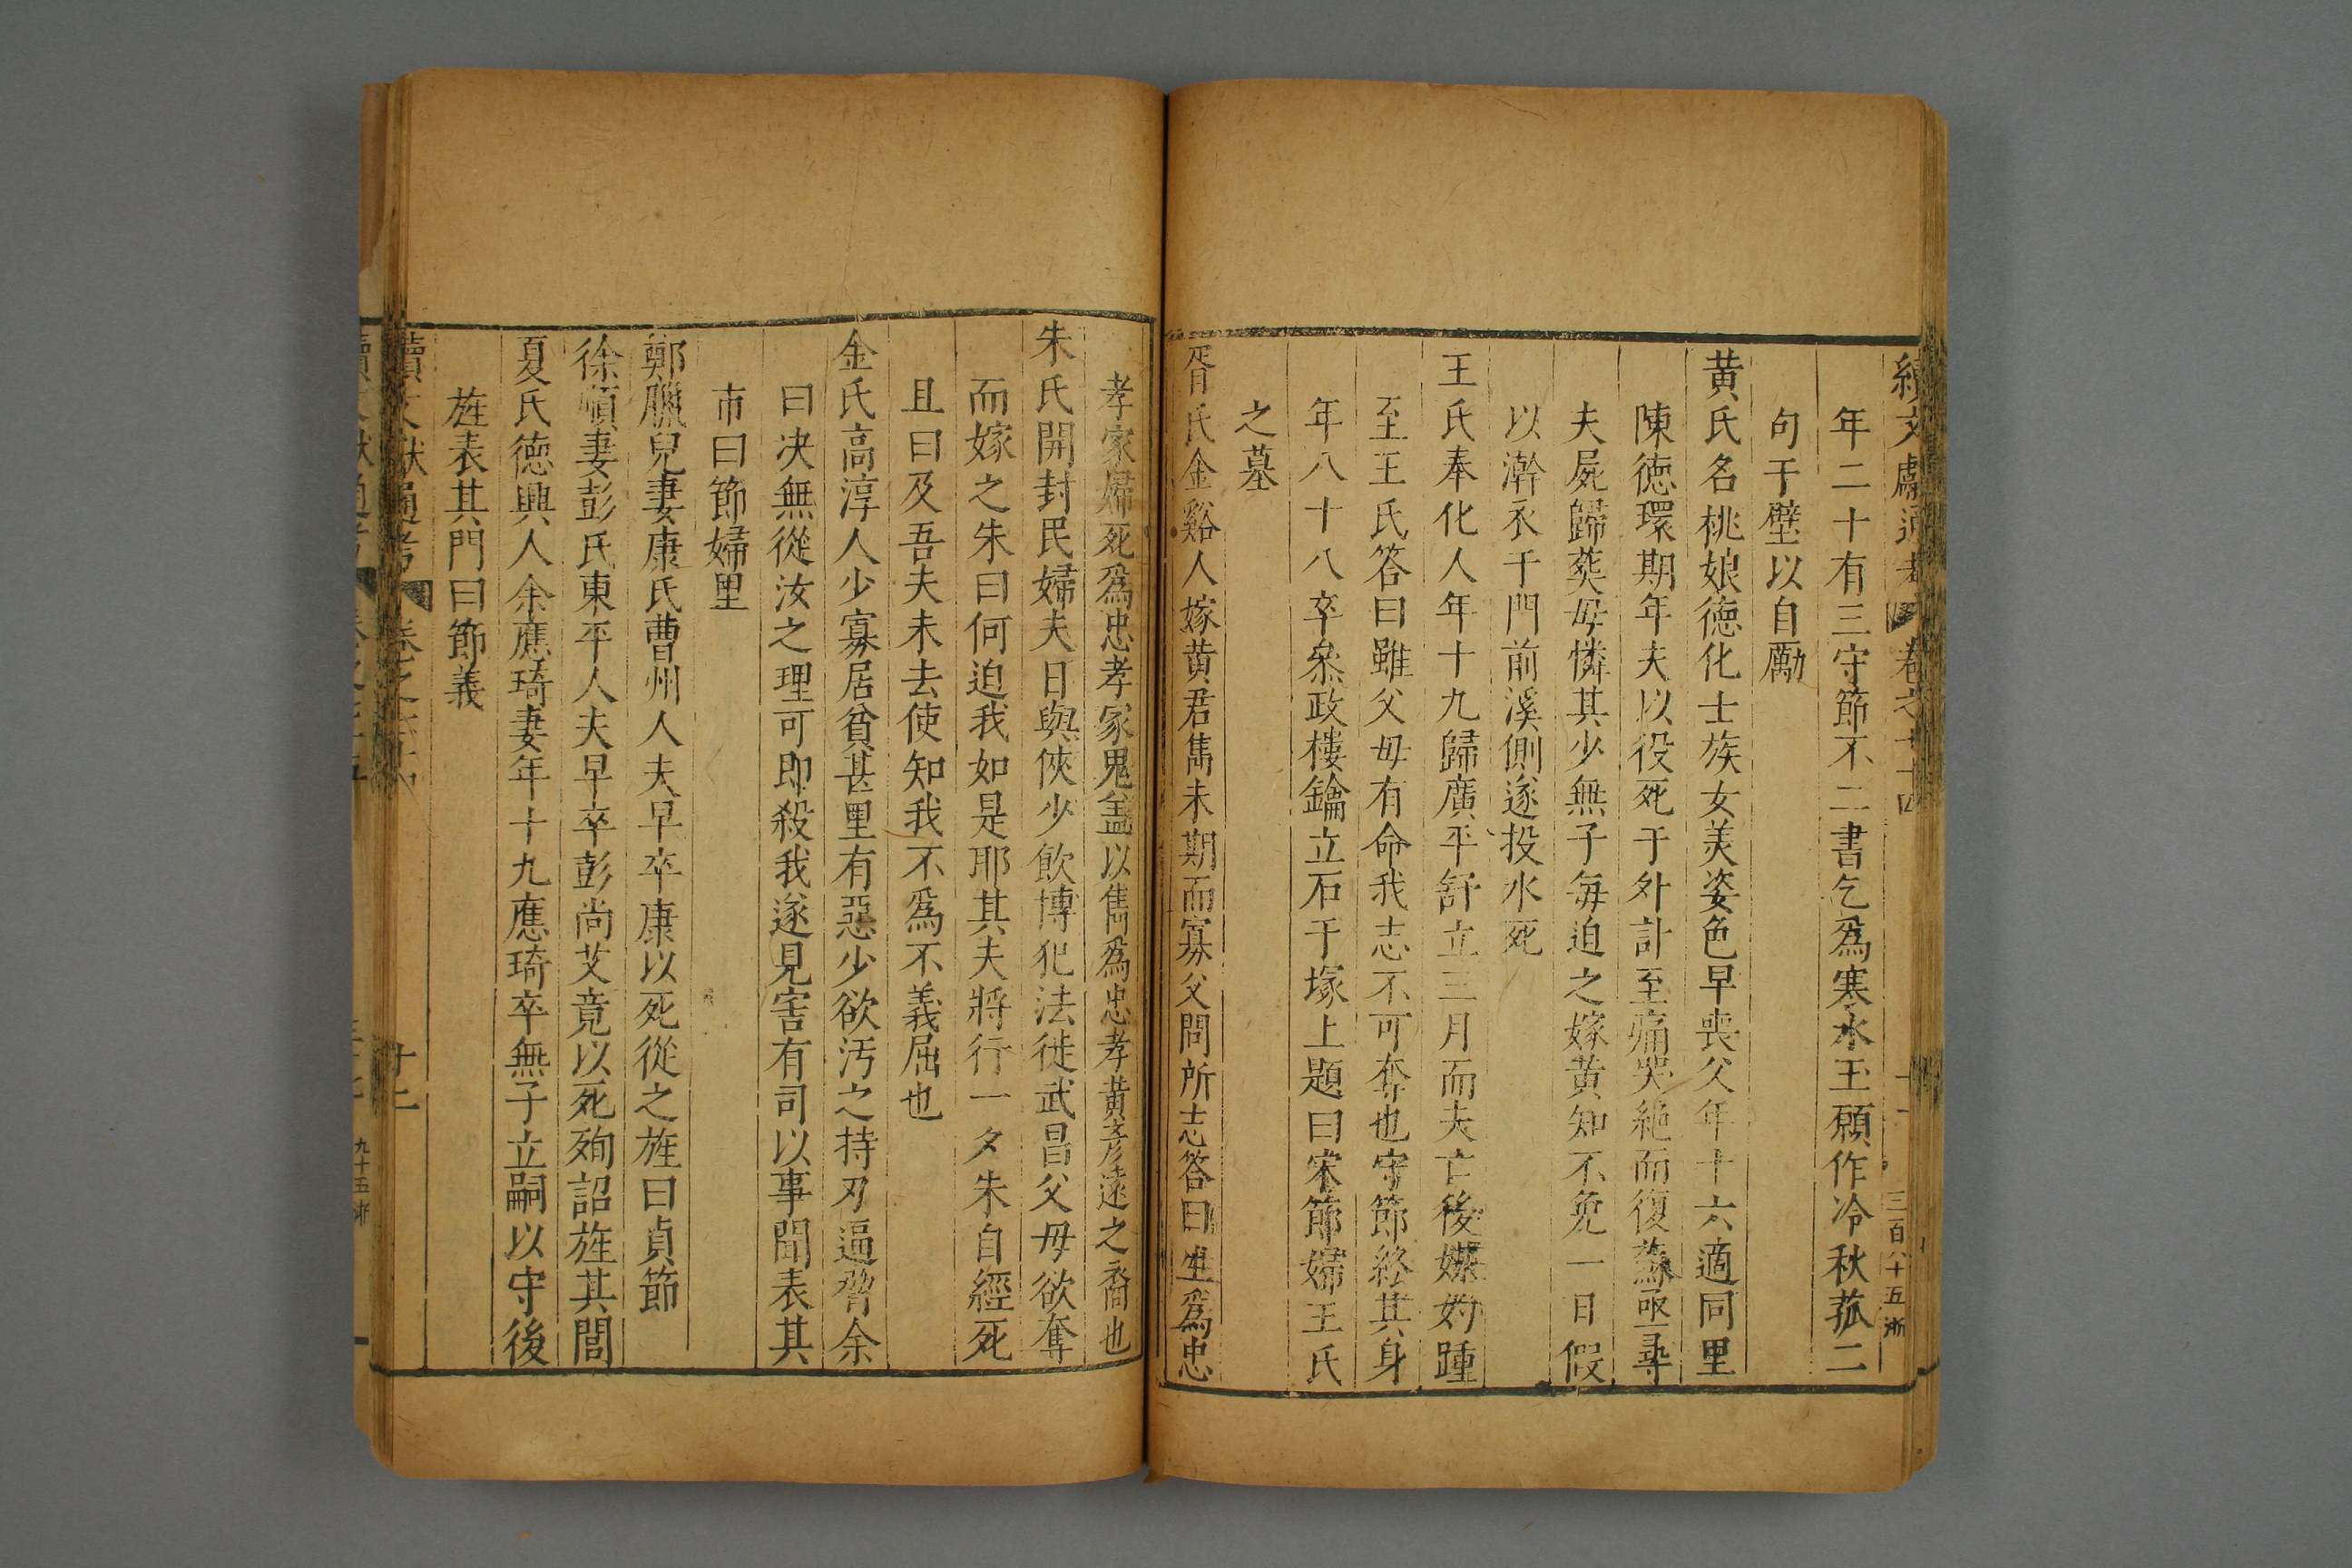 續文獻通考 卷之七十四
三百八十五 浙
年二十有三守節不二書乞爲寒水玉願作冷秋菰二
句于壁以自勵
黄氏名桃娘徳化士族女美姿色早喪父年十六適同里
陳徳環期年夫以役死于外訃至痛哭絶而復蘓亟尋
夫屍歸葬毋憐其少無子每迫之嫁黄知不免一日假
以澣衣于門前溪側遂投水死
王氏奉化人年十九歸廣平舒立三月而夫亡後媒妁踵
至王氏答曰雖父毋有命我志不可奪也守節終其身
年八十八卒叅政樓鑰立石于塚上題曰宋節婦王氏
之墓
胥氏金谿人嫁黄君雋未期而寡父問所志答曰生爲忠
孝家婦死爲忠孝家鬼盖以雋爲忠孝黄彦遠之裔也
朱氏開封民婦夫日與俠少飲博犯法徙武昌父毋欲奪
而嫁之朱曰何迫我如是耶其夫將行一夕朱自經死
且曰及吾夫未去使知我不爲不義屈也
金氏高淳人少寡居貧甚里有惡少欲汚之持刃逼脅余
曰决無從汝之理可即殺我遂見害有司以事聞表其
市曰節婦里
鄭臘兒妻康氏曹州人夫早卒康以死從之旌曰貞節
徐順妻彭氏東平人夫早卒彭尚艾竟以死殉詔旌其閭
夏氏徳興人余應琦妻年十九應琦卒無子立嗣以守後
旌表其門曰節義
續文獻通考
十二
九十五 浙